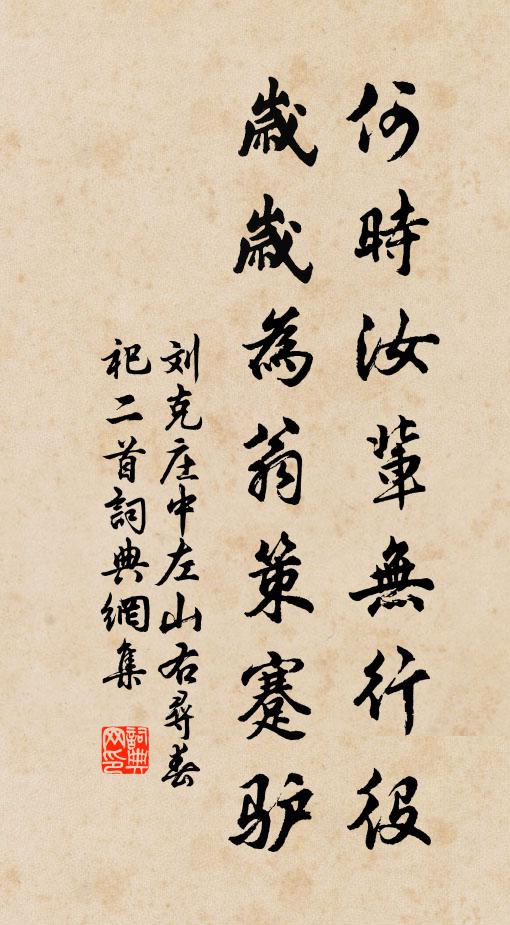 何時汝輩無行役
歲歲為翁策蹇驴
刘克庄中左山右尋春
祀二首詞典網集
詞典網印